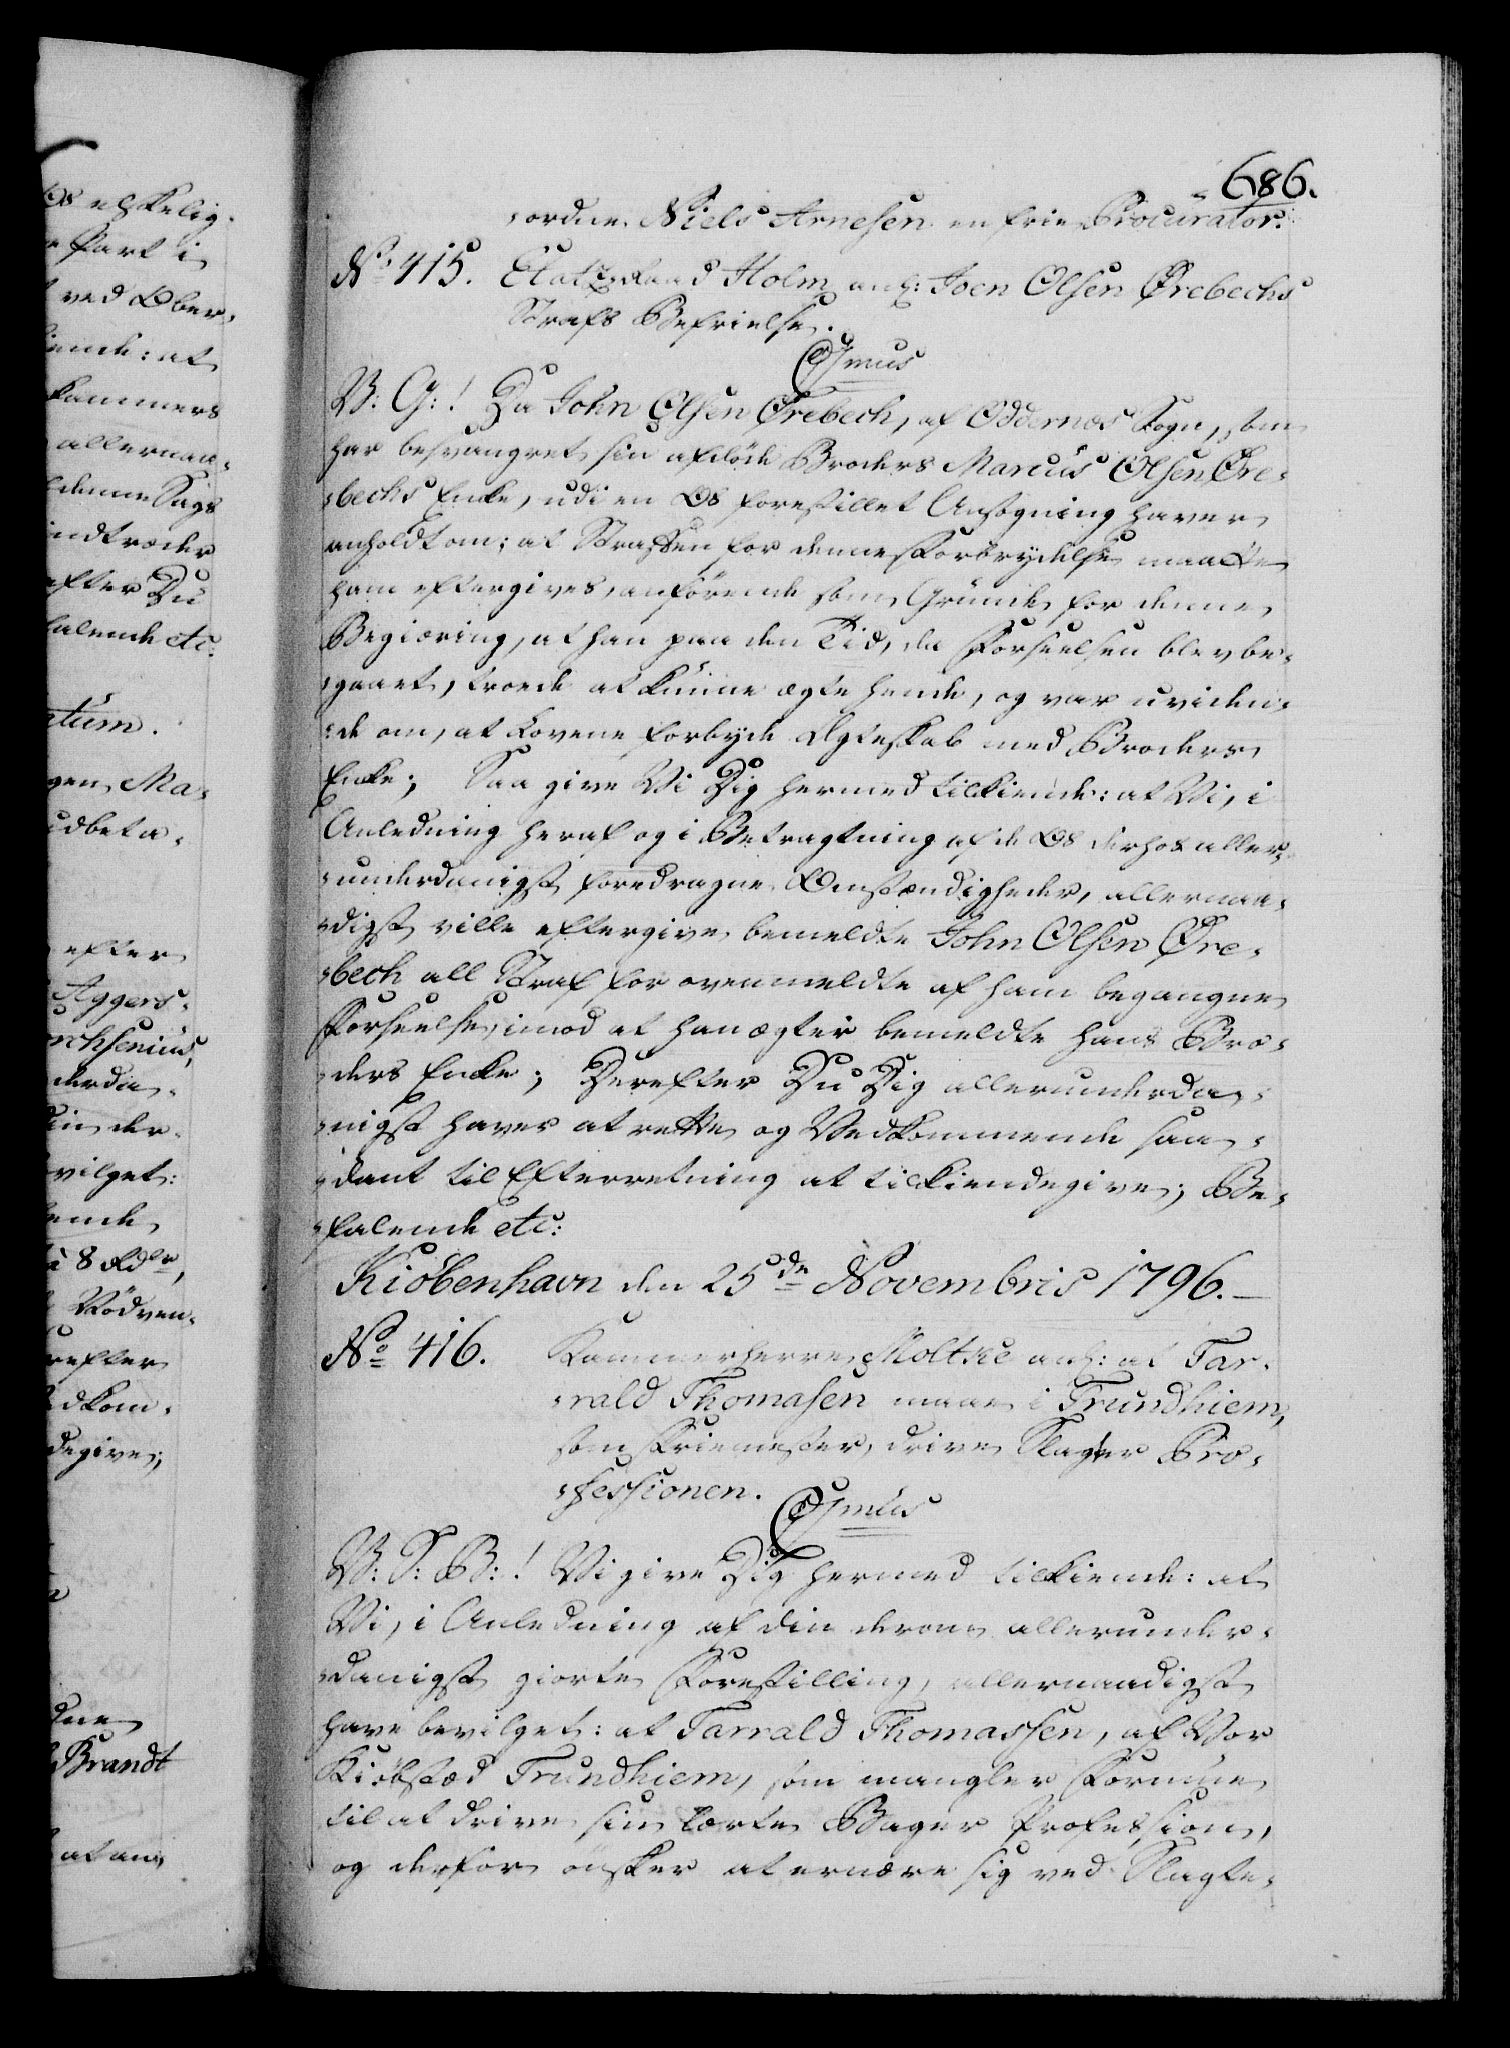 686.
-ordne Niels Arnesen en frie Procurator.
No. 415. Etatz Raad Holm anl: Joen Olsen Ørebechs
Strafs Befrielse.
C7mus
V: G:! Da John Olsen Ørebech, af Oddernæs Sogn, som
har besvangret sin afdöde Broders Marcus Olsen Øre-
-bechs Enke, udi en Os forestillet Ansögning haver
anholdt om; at Straffen for denne Forbrydelse maatte
ham eftergives, anförende som Grunde for denne
Begiæring, at han paa den Tid, da Forseelsen blev be-
-gaaet, troede at kunne ægte hende, og var uviden-
-de om, at Lovene forbyde Ægteskab med Broders
Enke; Saa give Vi Dig hermed tilkiende: at Vi, i
Anledning heraf og i Betragtning af de Os derhos aller-
-underdanigst foredragne Omstændigheder, allernaa-
-digst ville eftergive bemeldte John Olsen Øre-
-bech all Straf for ovenmeldte af ham begangne
Forseelse, imod at han ægter bemeldte hans Bro-
-ders Enke; Derefter Du Dig allerunderda-
-nigst haver at rette og Vedkommende saa-
-dant til Efterretning at tilkiendegive; Be-
-falende etc:
Kiöbenhavn den 25de Novembris 1796.
No. 416. Kammerherre Moltke anl: at Tar-
-rald Thomasen maae i Trundhiem,
som Friemester, drive Slagter Pro-
-fessionen.
C7mus
V: S: B:! Vi give Dig hermed tilkiende: at
Vi, i Anledning af din derom allerunder-
-danigst giorte Forestilling, allernaadigst
have bevilget: at Tarrald Thomassen, af Vor
Kiöbstæd Trundhiem, som mangler Formue
til at drive sin lærte Bager Profession,
og derfor önsker at ernære sig ved Slagte-